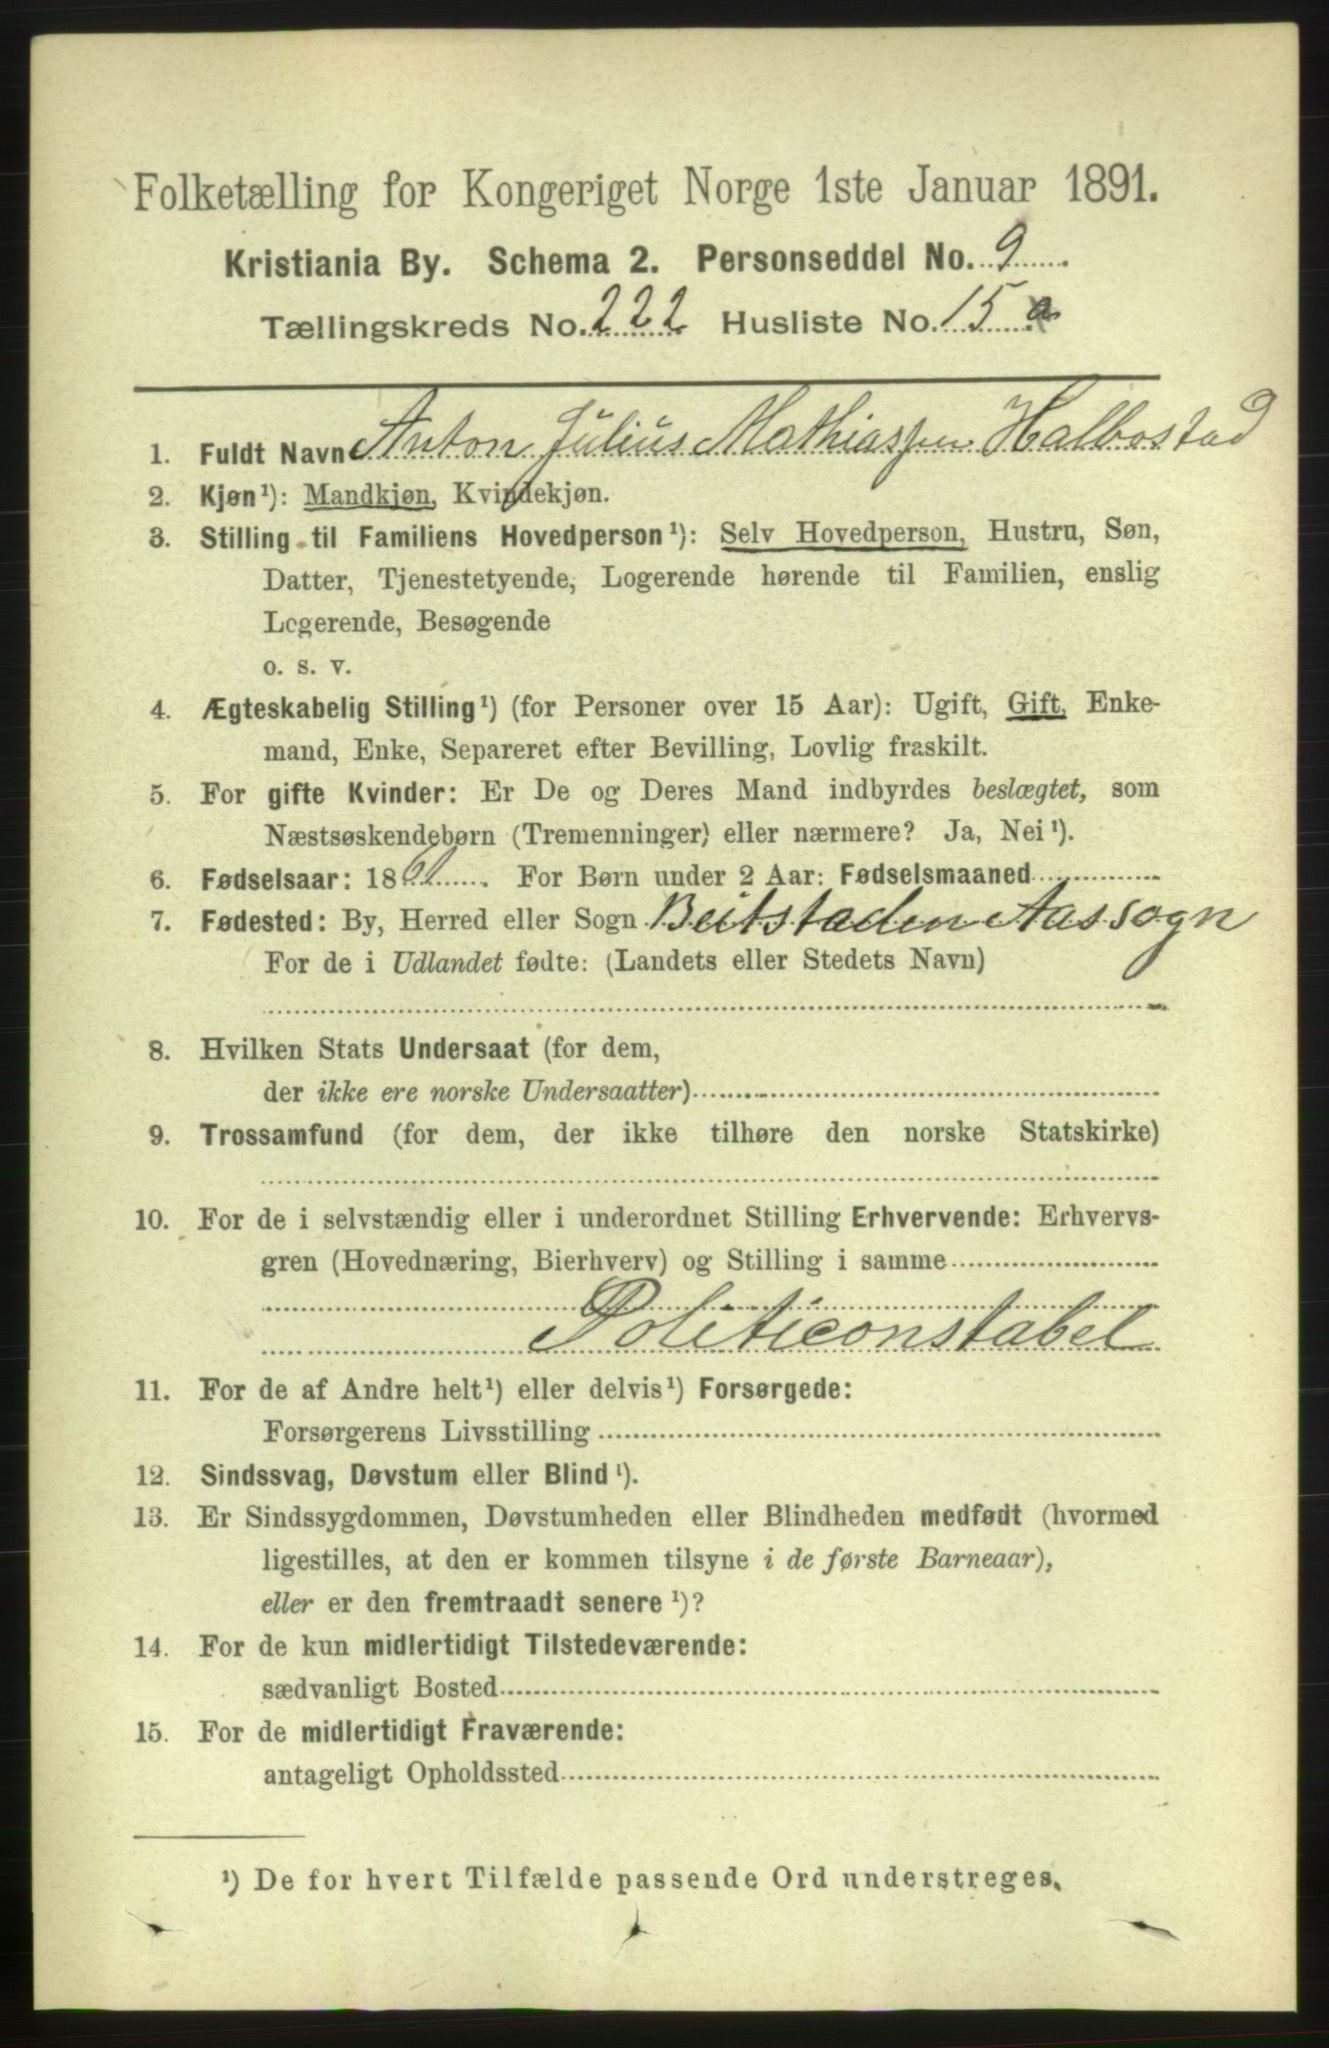 Folketælling for Kongeriget Norge 1ste Januar 1891.
Kristiania By. Schema 2. Personseddel No. 9
Tællingskreds No. 222 Husliste No. 15 a
1. Fuldt Navn Anton Julius Mathiassen Halbostad
2. Kjøn¹): Mandkjøn, Kvindekjøn.
3. Stilling til Familiens Hovedperson¹): Selv Hovedperson, Hustru, Søn,
Datter, Tjenestetyende, Logerende hørende til Familien, enslig
Logerende, Besøgende
o. s. v.
4. Ægteskabelig Stilling¹) (for Personer over 15 Aar): Ugift, Gift, Enke-
mand, Enke, Separeret efter Bevilling, Lovlig fraskilt.
5. For gifte Kvinder: Er De og Deres Mand indbyrdes beslægtet, som
Næstsøskendebørn (Tremenninger) eller nærmere? Ja, Nei¹).
6. Fødselsaar: 1861 For Børn under 2 Aar: Fødselsmaaned
7. Fødested: By, Herred eller Sogn Beitstaden Aas sogn
For de i Udlandet fødte: (Landets eller Stedets Navn)
8. Hvilken Stats Undersaat (for dem,
der ikke ere norske Undersaatter)
9. Trossamfund (for dem, der ikke tilhøre den norske Statskirke)
10. For de i selvstændig eller i underordnet Stilling Erhvervende: Erhvervs-
gren (Hovednæring, Bierhverv) og Stilling i samme
Politiconstabel
11. For de af Andre helt¹) eller delvis¹) Forsørgede:
Forsørgerens Livsstilling
12. Sindssvag, Døvstum eller Blind¹).
13. Er Sindssygdommen, Døvstumheden eller Blindheden medfødt (hvormed
ligestilles, at den er kommen tilsyne i de første Barneaar),
eller er den fremtraadt senere¹)?
14. For de kun midlertidigt Tilstedeværende:
sædvanligt Bosted
15. For de midlertidigt Fraværende:
antageligt Opholdssted
¹) De for hvert Tilfælde passende Ord understreges.